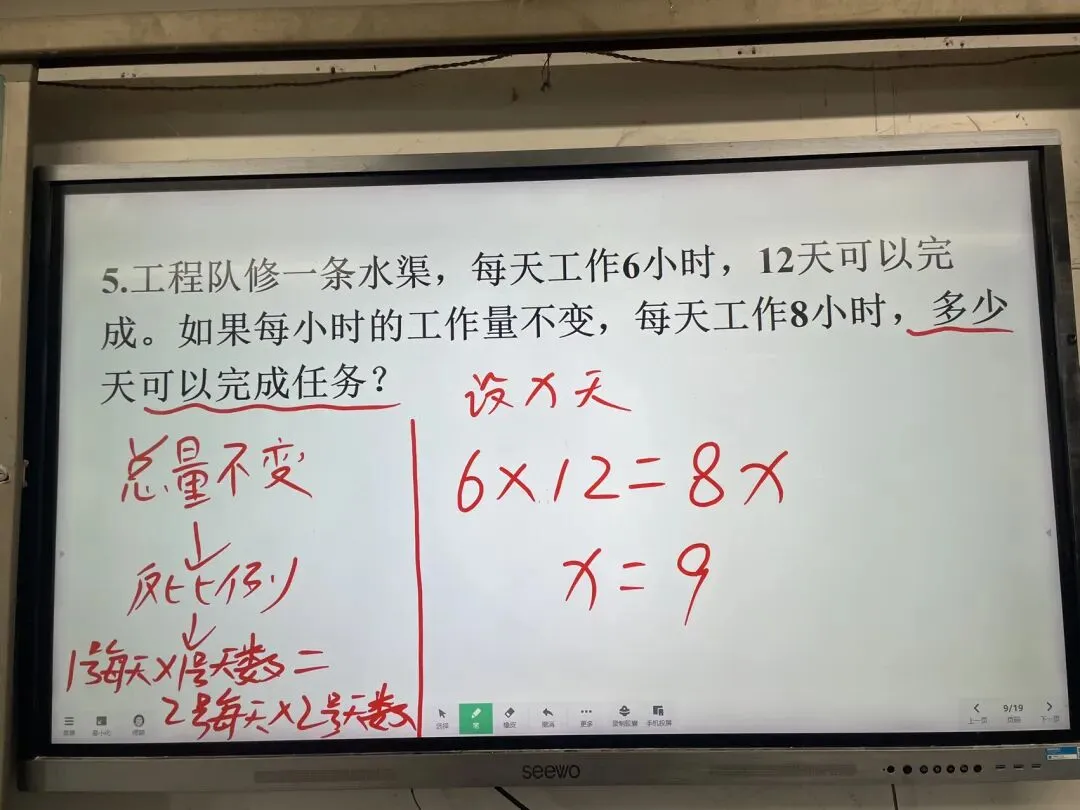 5.工程队修一条水渠，每天工作6小时，12天可以完
成。如果每小时的工作量不变，每天工作8小时，多少
天可以完成任务？
设x天
总量不变
6×12=8x
反比例
x=9
1号每天×1号天数=
2号每天×2号天数
选择 笔 橡皮 撤消 更多 录制胶囊 手机投屏
9/19
上一页 页码 下一页
seewo